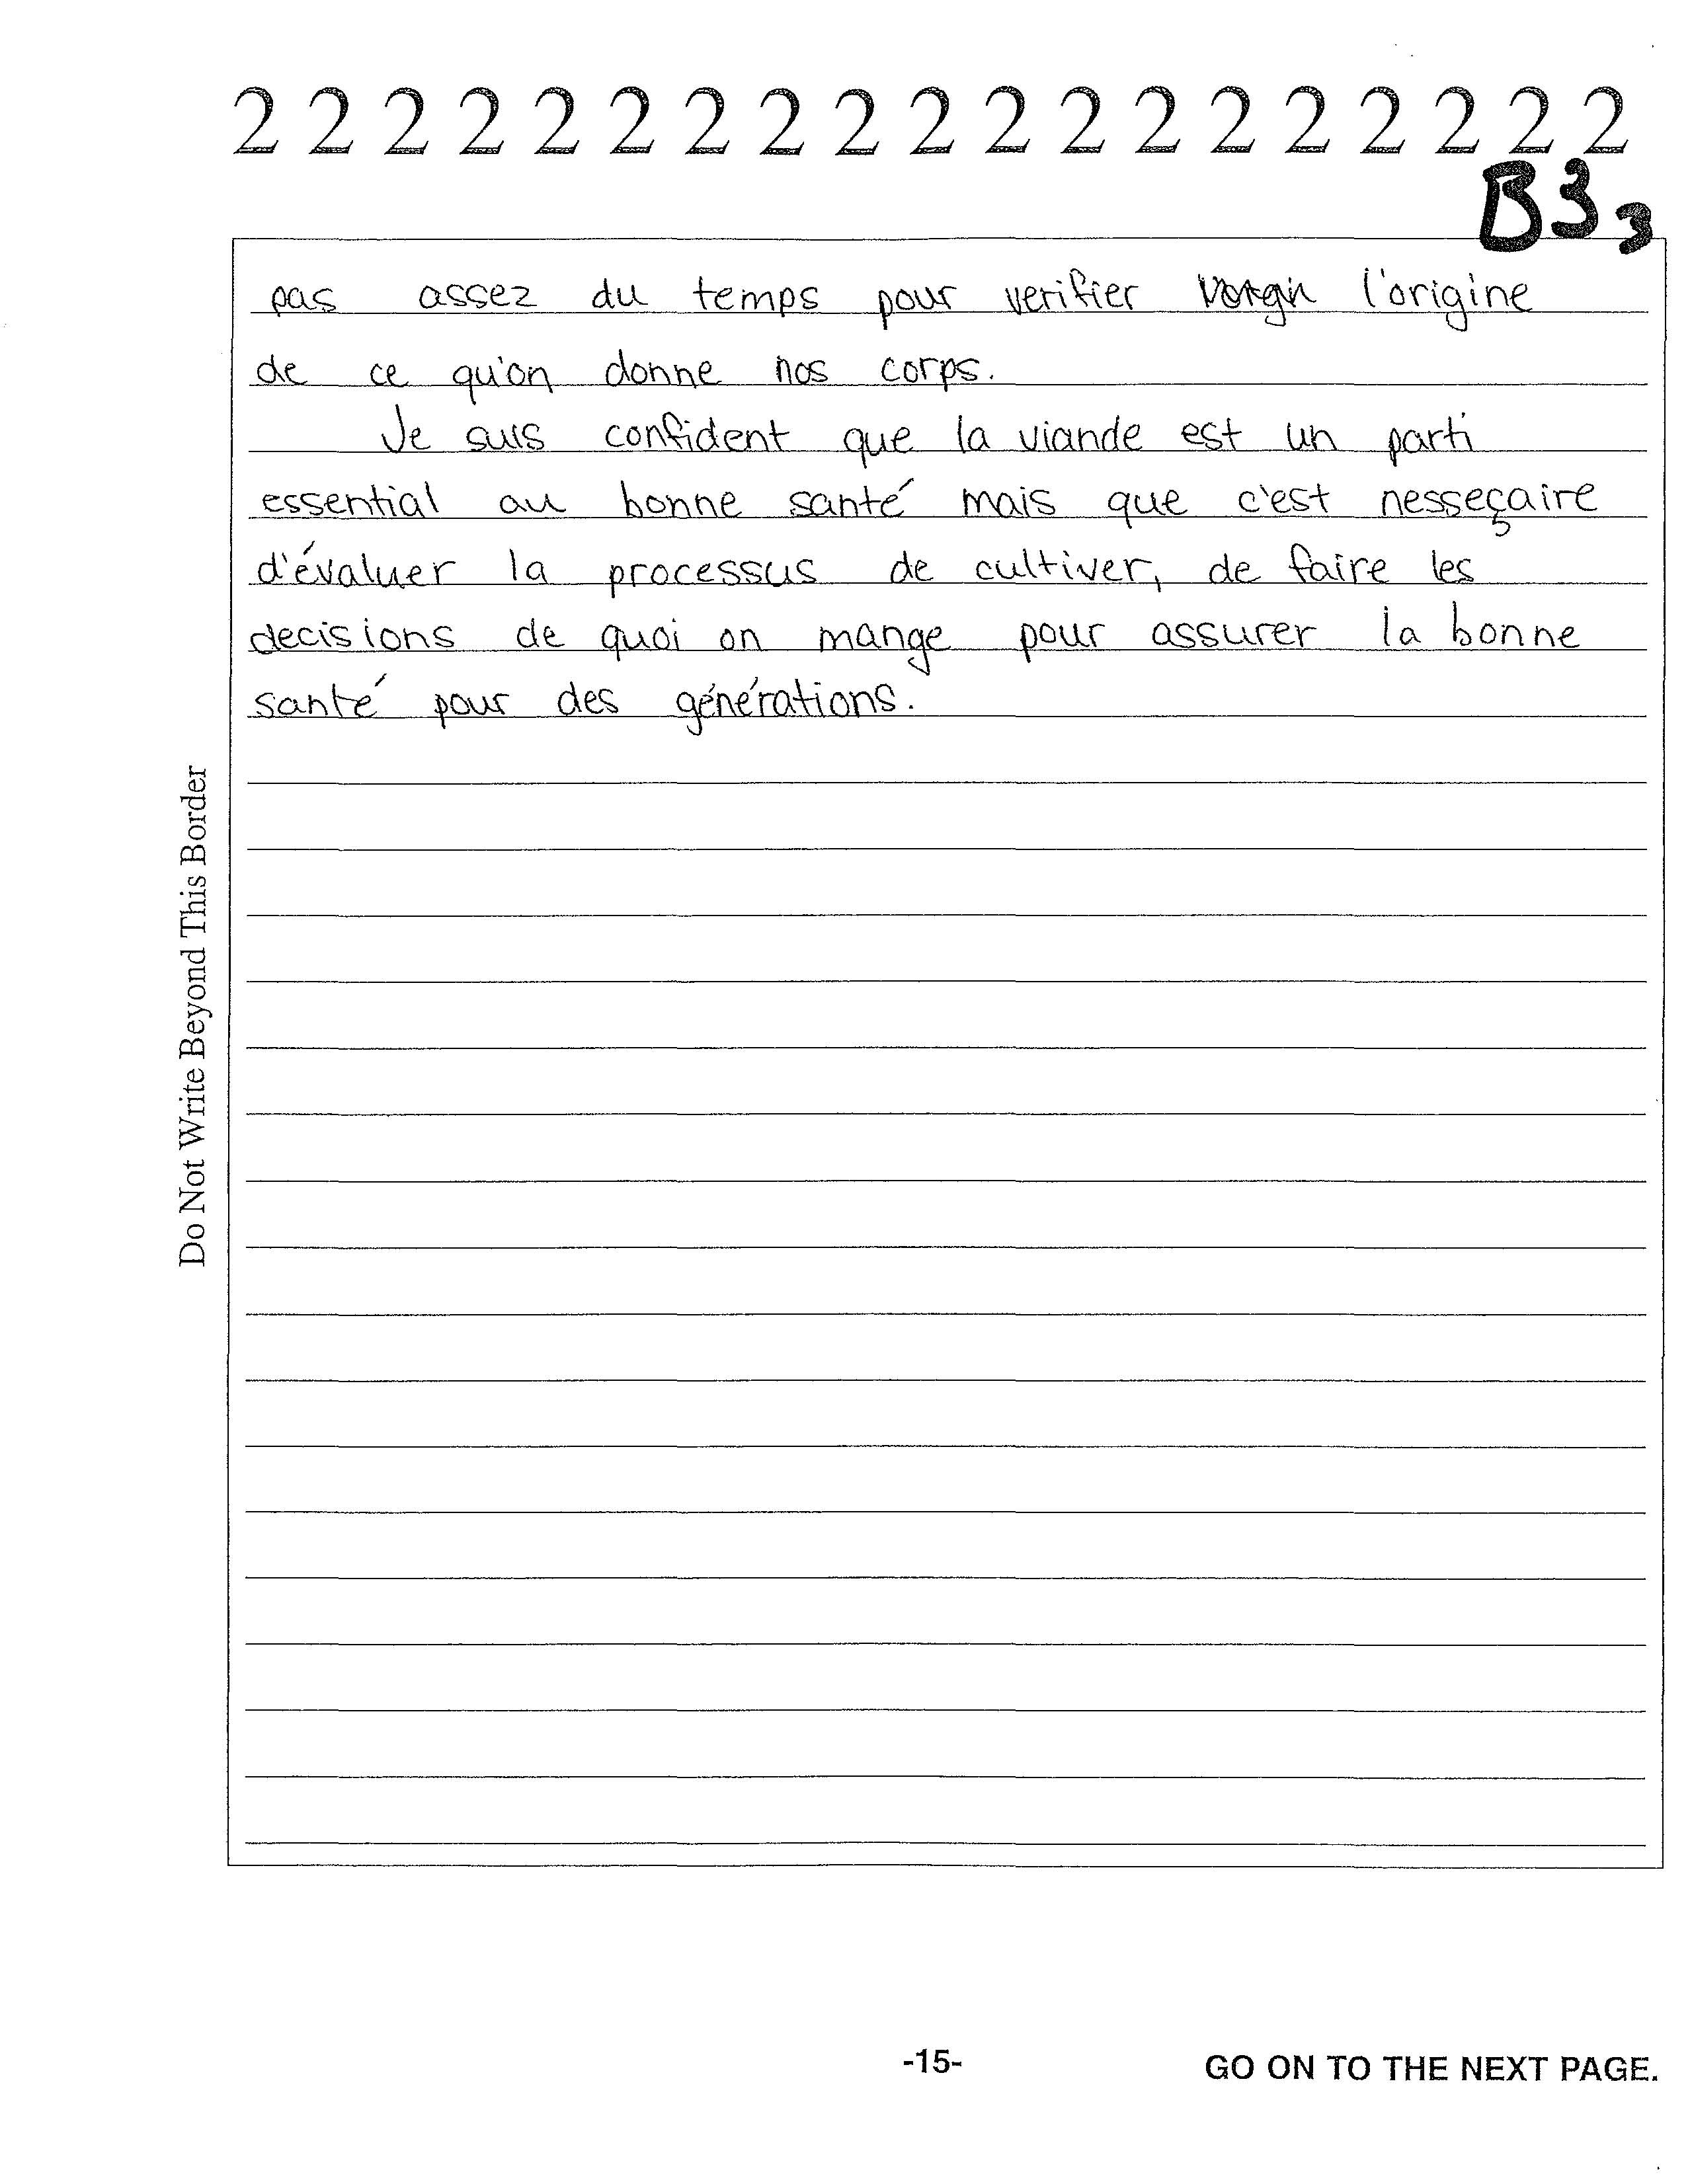 2 2 2 2 2 2 2 2 2 2 2 2 2 2 2 2 2 2 2
B3 3
pas assez du temps pour verifier l'origine
de ce qu'on donne nos corps.
Je suis confident que la viande est un parti
essential au bonne santé mais que c'est nesseçaire
d'évaluer la processus de cultiver, de faire les
decisions de quoi on mange pour assurer la bonne
santé pour des générations.
Do Not Write Beyond This Border
-15-
GO ON TO THE NEXT PAGE.